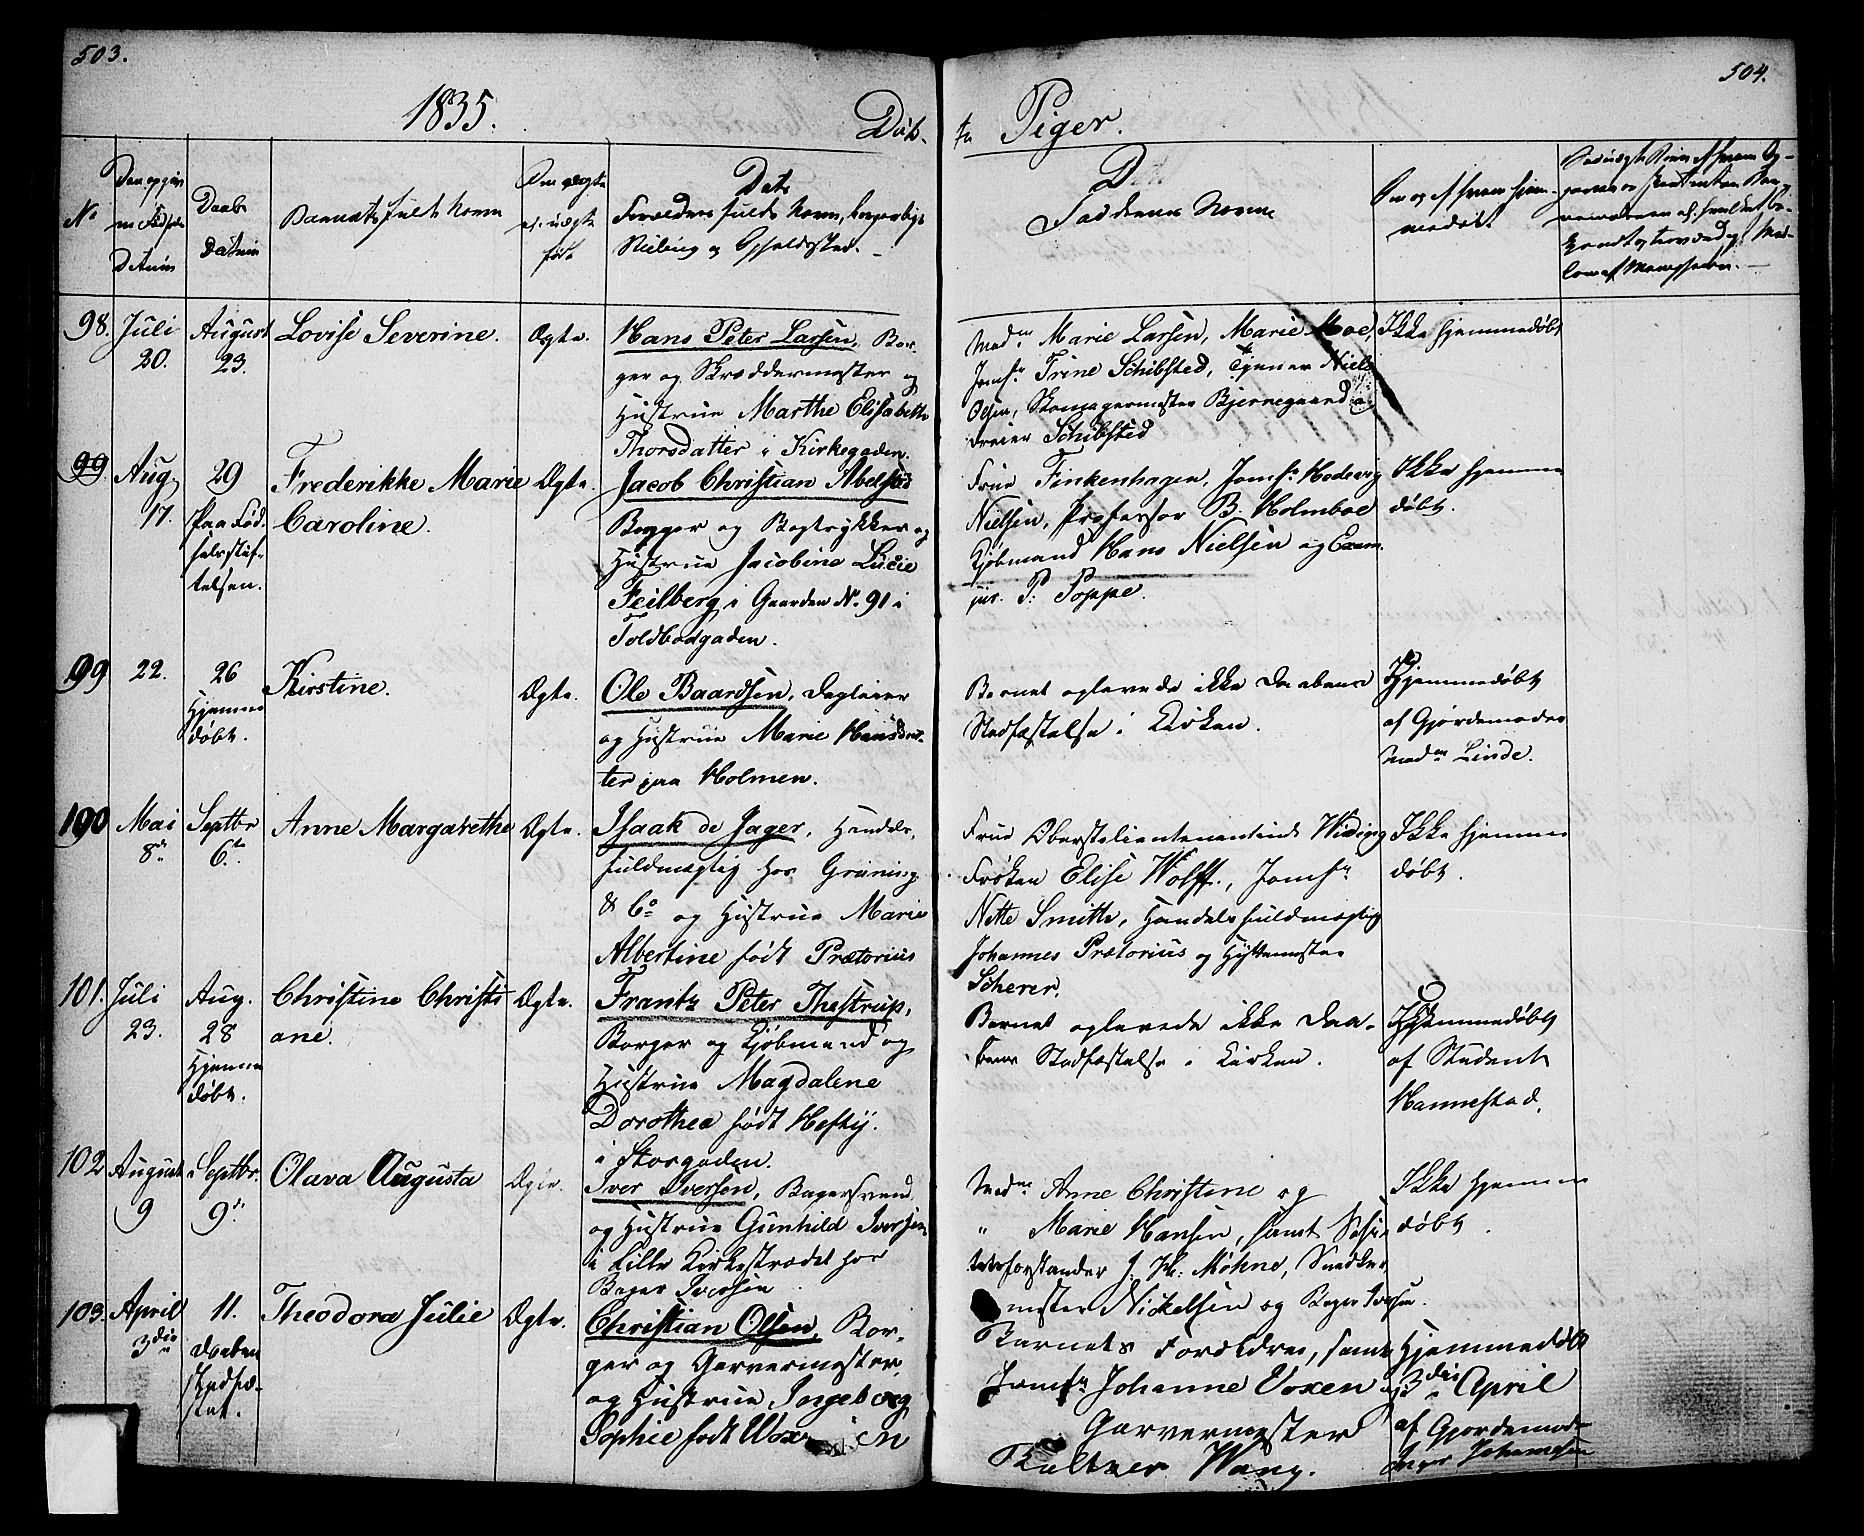 503.
504.
1835.
Døb-
te Piger.
No
Daabs
Datum
Barnets fulde Navn
Om ægte
el. uægte
født
Dets
Forældres fulde Navn, borgerlige
Stilling og Opholdssted.
Faddernes Navne
98. Juli
20.
August
23.
Lovise Severine.
Ægte.
Hans Peter Larsen, Bor-
ger og Skræddermester og
Hustrue Marthe Elisabeth
Thorsdatter i Kirkegaden.
Madme Marie Larsen, Marie Moe,
Jomfr Trine Schibsted, Niels
Olsen, Skomagermester Bjerregaard og
Dreier Schibsted
Ikke hjemmedøbt
99. Aug.
17.
29
Paa Fød-
selsstif-
telsen.
Frederikke Marie
Caroline.
Ægte.
Jacob Christian Abelsted
Borger og Bogtrykker og
Hustrue Jacobine Lucie
Feilberg i Gaarden No 91 i
Toldbodgaden.
Frue Finkenhagen, Jomfr Hedevig
Nielsen, Professor B. Holmboe
Kjøbmand Hans Nielsen og Exam.
jur. P. Poppe.
Ikke hjemme
døbt.
99
22.
26
Hjemme
døbt.
Kirstine.
Ægte.
Ole Baardsen, Dagleier
og Hustrue Marie Hansdat-
ter paa Holmen.
Barnet oplevede ikke Daabens
Stadfæstelse i Kirken.
Hjemmedøbt
af Gjordemoder
Madme Linde.
100 Mai
8de
Septbr
6te
Anne Margarethe
Ægte.
Isaak de Jager, Handels-
fuldmægtig hos Grüning
& Co og Hustrue Marie
Albertine født Prætorius
Frue Oberstlieutenantinde Widing
Frøken Elise Wolff, Jomfr
Nette Smitte, Handelsfuldmægtig
Johannes Prætorius og Hyttemester
Scherer.
Ikke hjemme
døbt.
101. Juli
23.
Aug.
28
Hjemme
døbt.
Christine Christi
ane.
Ægte.
Frantz Peter Thestrup,
Borger og Kjøbmand og
Hustrue Magdalene
Dorothea født Heftÿ.
i Storgaden.
Barnet oplevede ikke Daa-
bens Stadfæstelse i Kirken.
Hjemmedøbt
af Student
Hannestad.
102 August
9
Septbr.
9de
Olava Augusta
Ægte.
Iver Iversen, Bagersvend
og Hustrue Gunhild Iversen
i Lille Kirkestrædet hos
Bager Iversen
Madme Anne Christine og
" Marie Hansen, samt
forstander J. H. Møhne, Snedker
mester Nickelsen og Bager Iversen.
Ikke hjemme
døbt.
103. April
3die
11.
Daaben
stadfæ-
stet.
Theodora Julie
Ægte.
Christian Olsen, Bor-
ger og Garvermester
og Hustrue Ingeborg
Sophie født Woxen
Barnets Forældre, samt
Jomfr Johanne Voxen og
Garvermester
Baltzer Wang.
Hjemmedøbt
3die April
af Gjordemod-
Johannesen